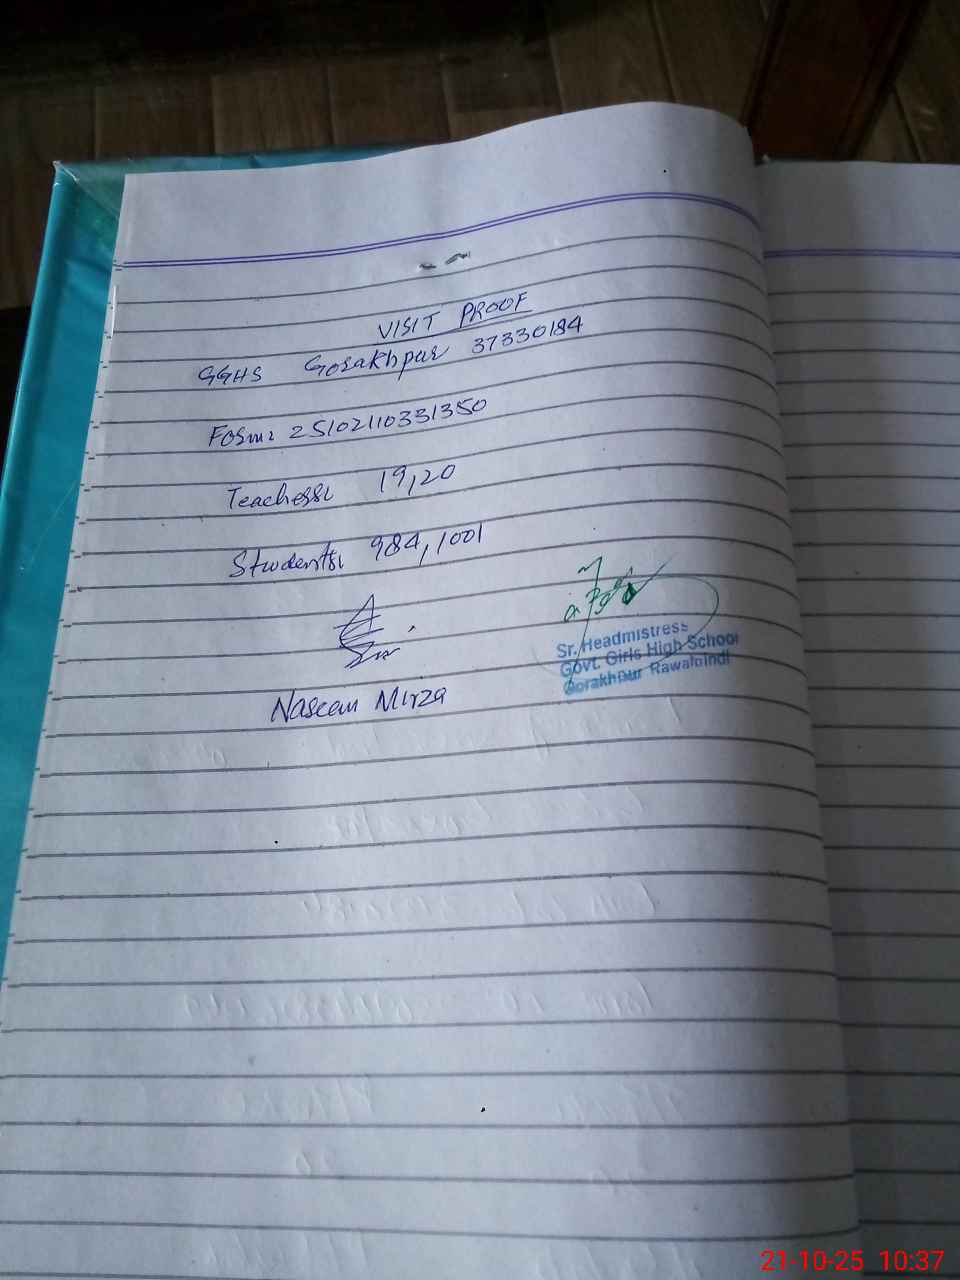 VISIT PROOF
GGHS Gorakhpur 37330184
Form: 25102110331350
Teachers: 19,20
Students: 984,1001
Naseem Mirza
Sr. Headmistress
Govt. Girls High School
Gorakhpur Rawalpindi
21-10-25 10:37